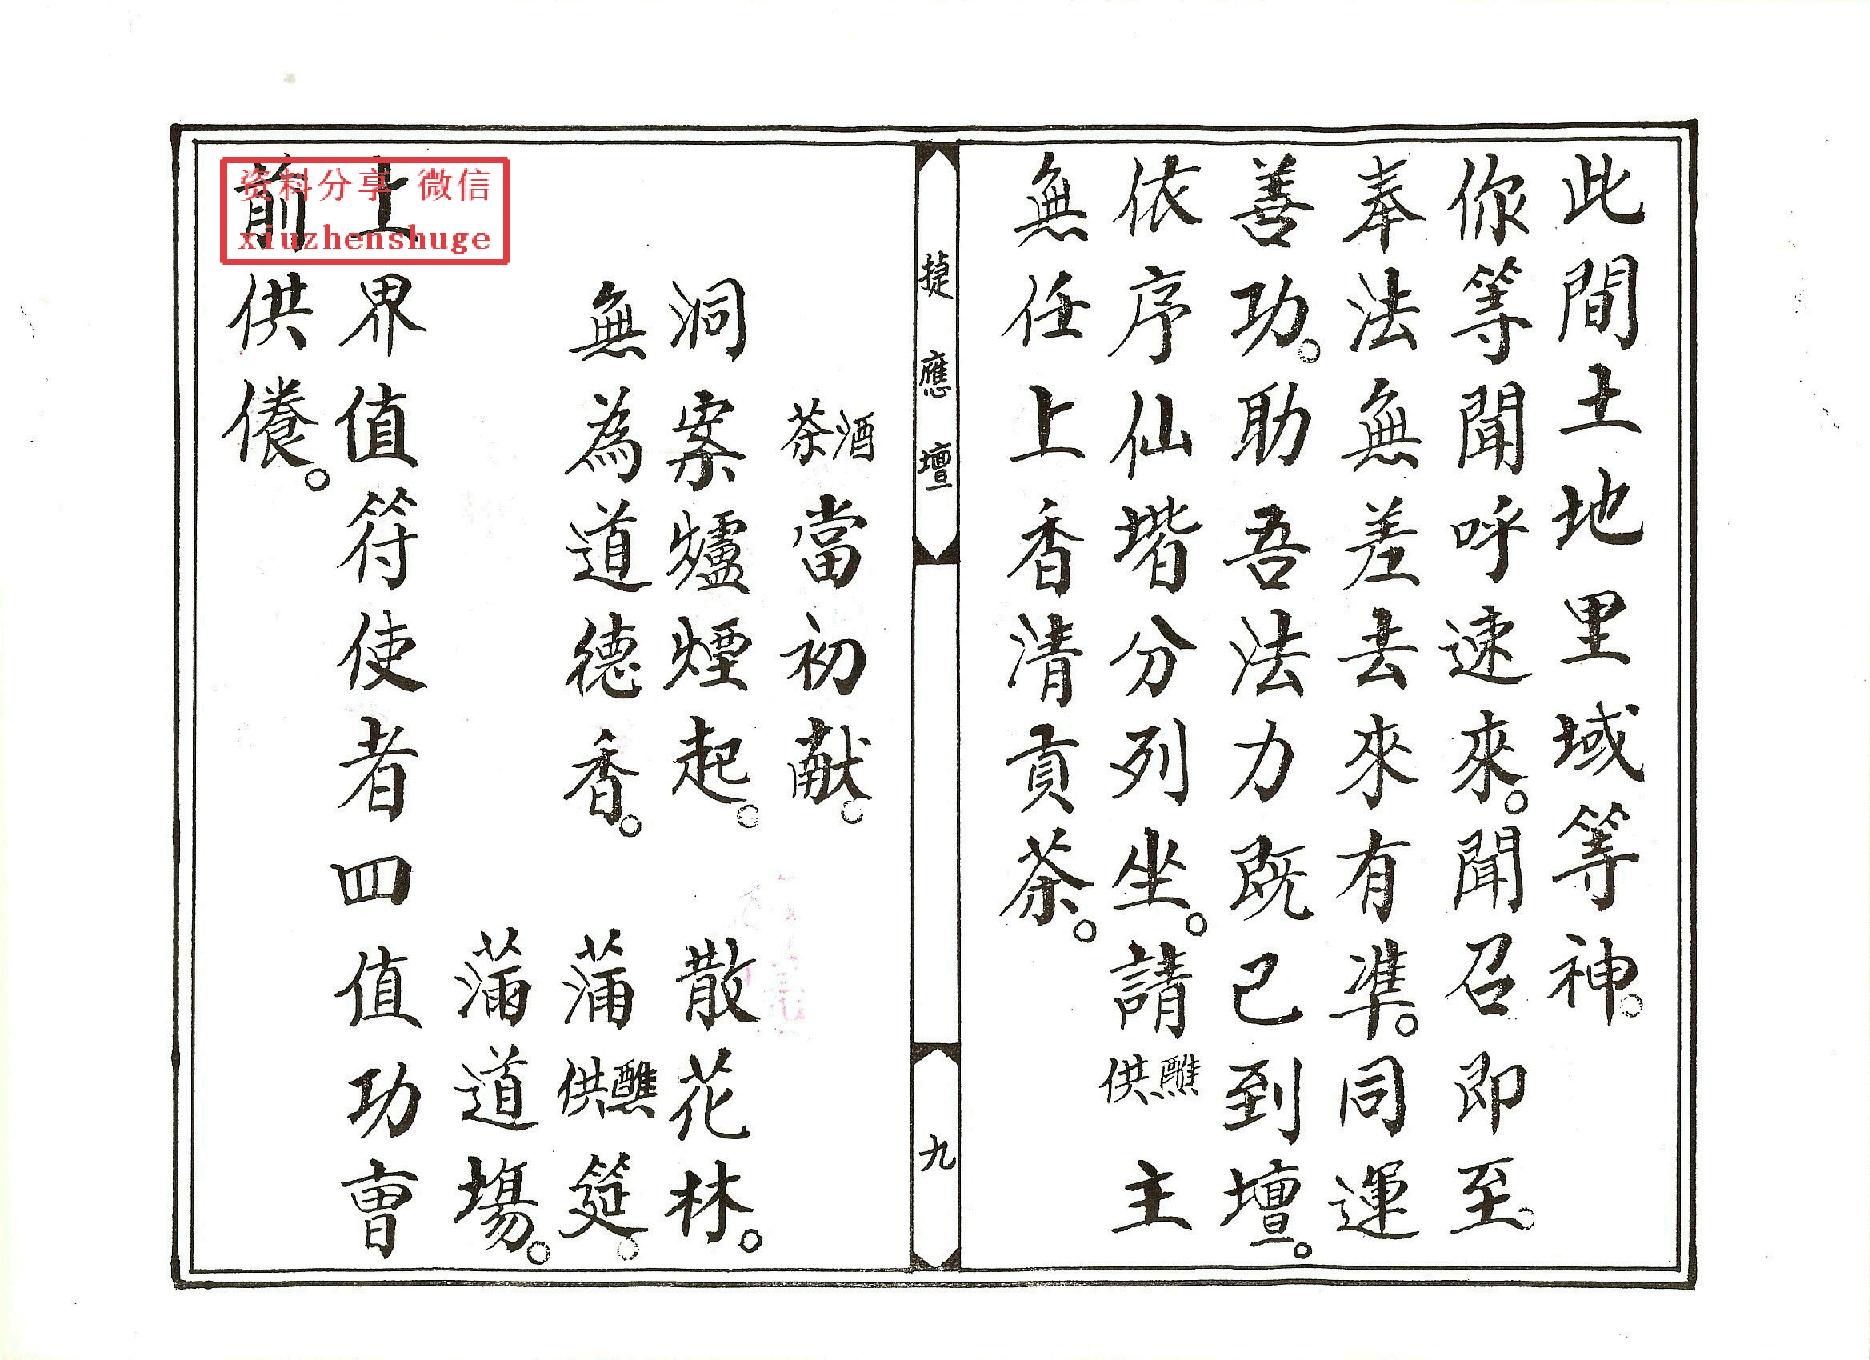 此間土地里域等神。
你等聞呼速來。聞召即至。
奉法無差去來有準。同運
善功。助吾法力既已到壇。
依序仙堦分列坐。請醮供主
無任上香清貢茶。
捷應壇
九
酒茶當初献。
洞案爐煙起。 散花林。
無為道德香。 滿醮供筵。
滿道場。
上界值符使者四值功曹
前供養。
资料分享 微信
xiuzhenshuge